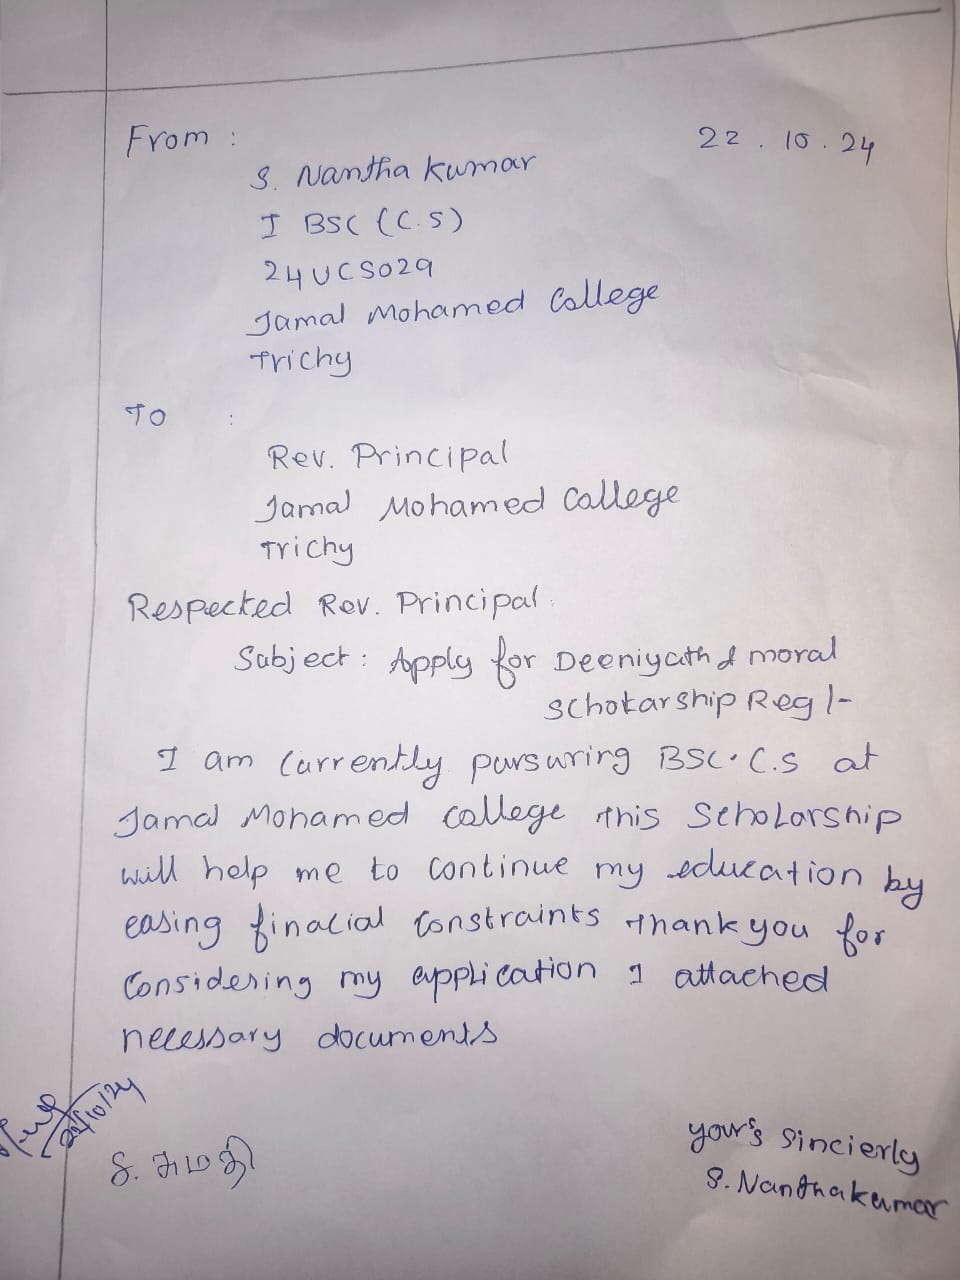 From :
22.10.24
S. Nantha kumar
I BSC (C.S)
24UCS029
Jamal Mohamed College
Trichy
To :
Rev. Principal
Jamal Mohamed College
Trichy
Respected Rev. Principal.
Subject : Apply for Deeniyath & moral
Schokarship Reg/-
I am Currently pursuring BSC. C.S at
Jamal Mohamed College this Scholarship
will help me to Continue my education by
easing finacial Constraints Thank you for
Considering my application I attached
necessary documents
22/10/24
S. சுமதி
your's Sincierly
S. Nanthakumar